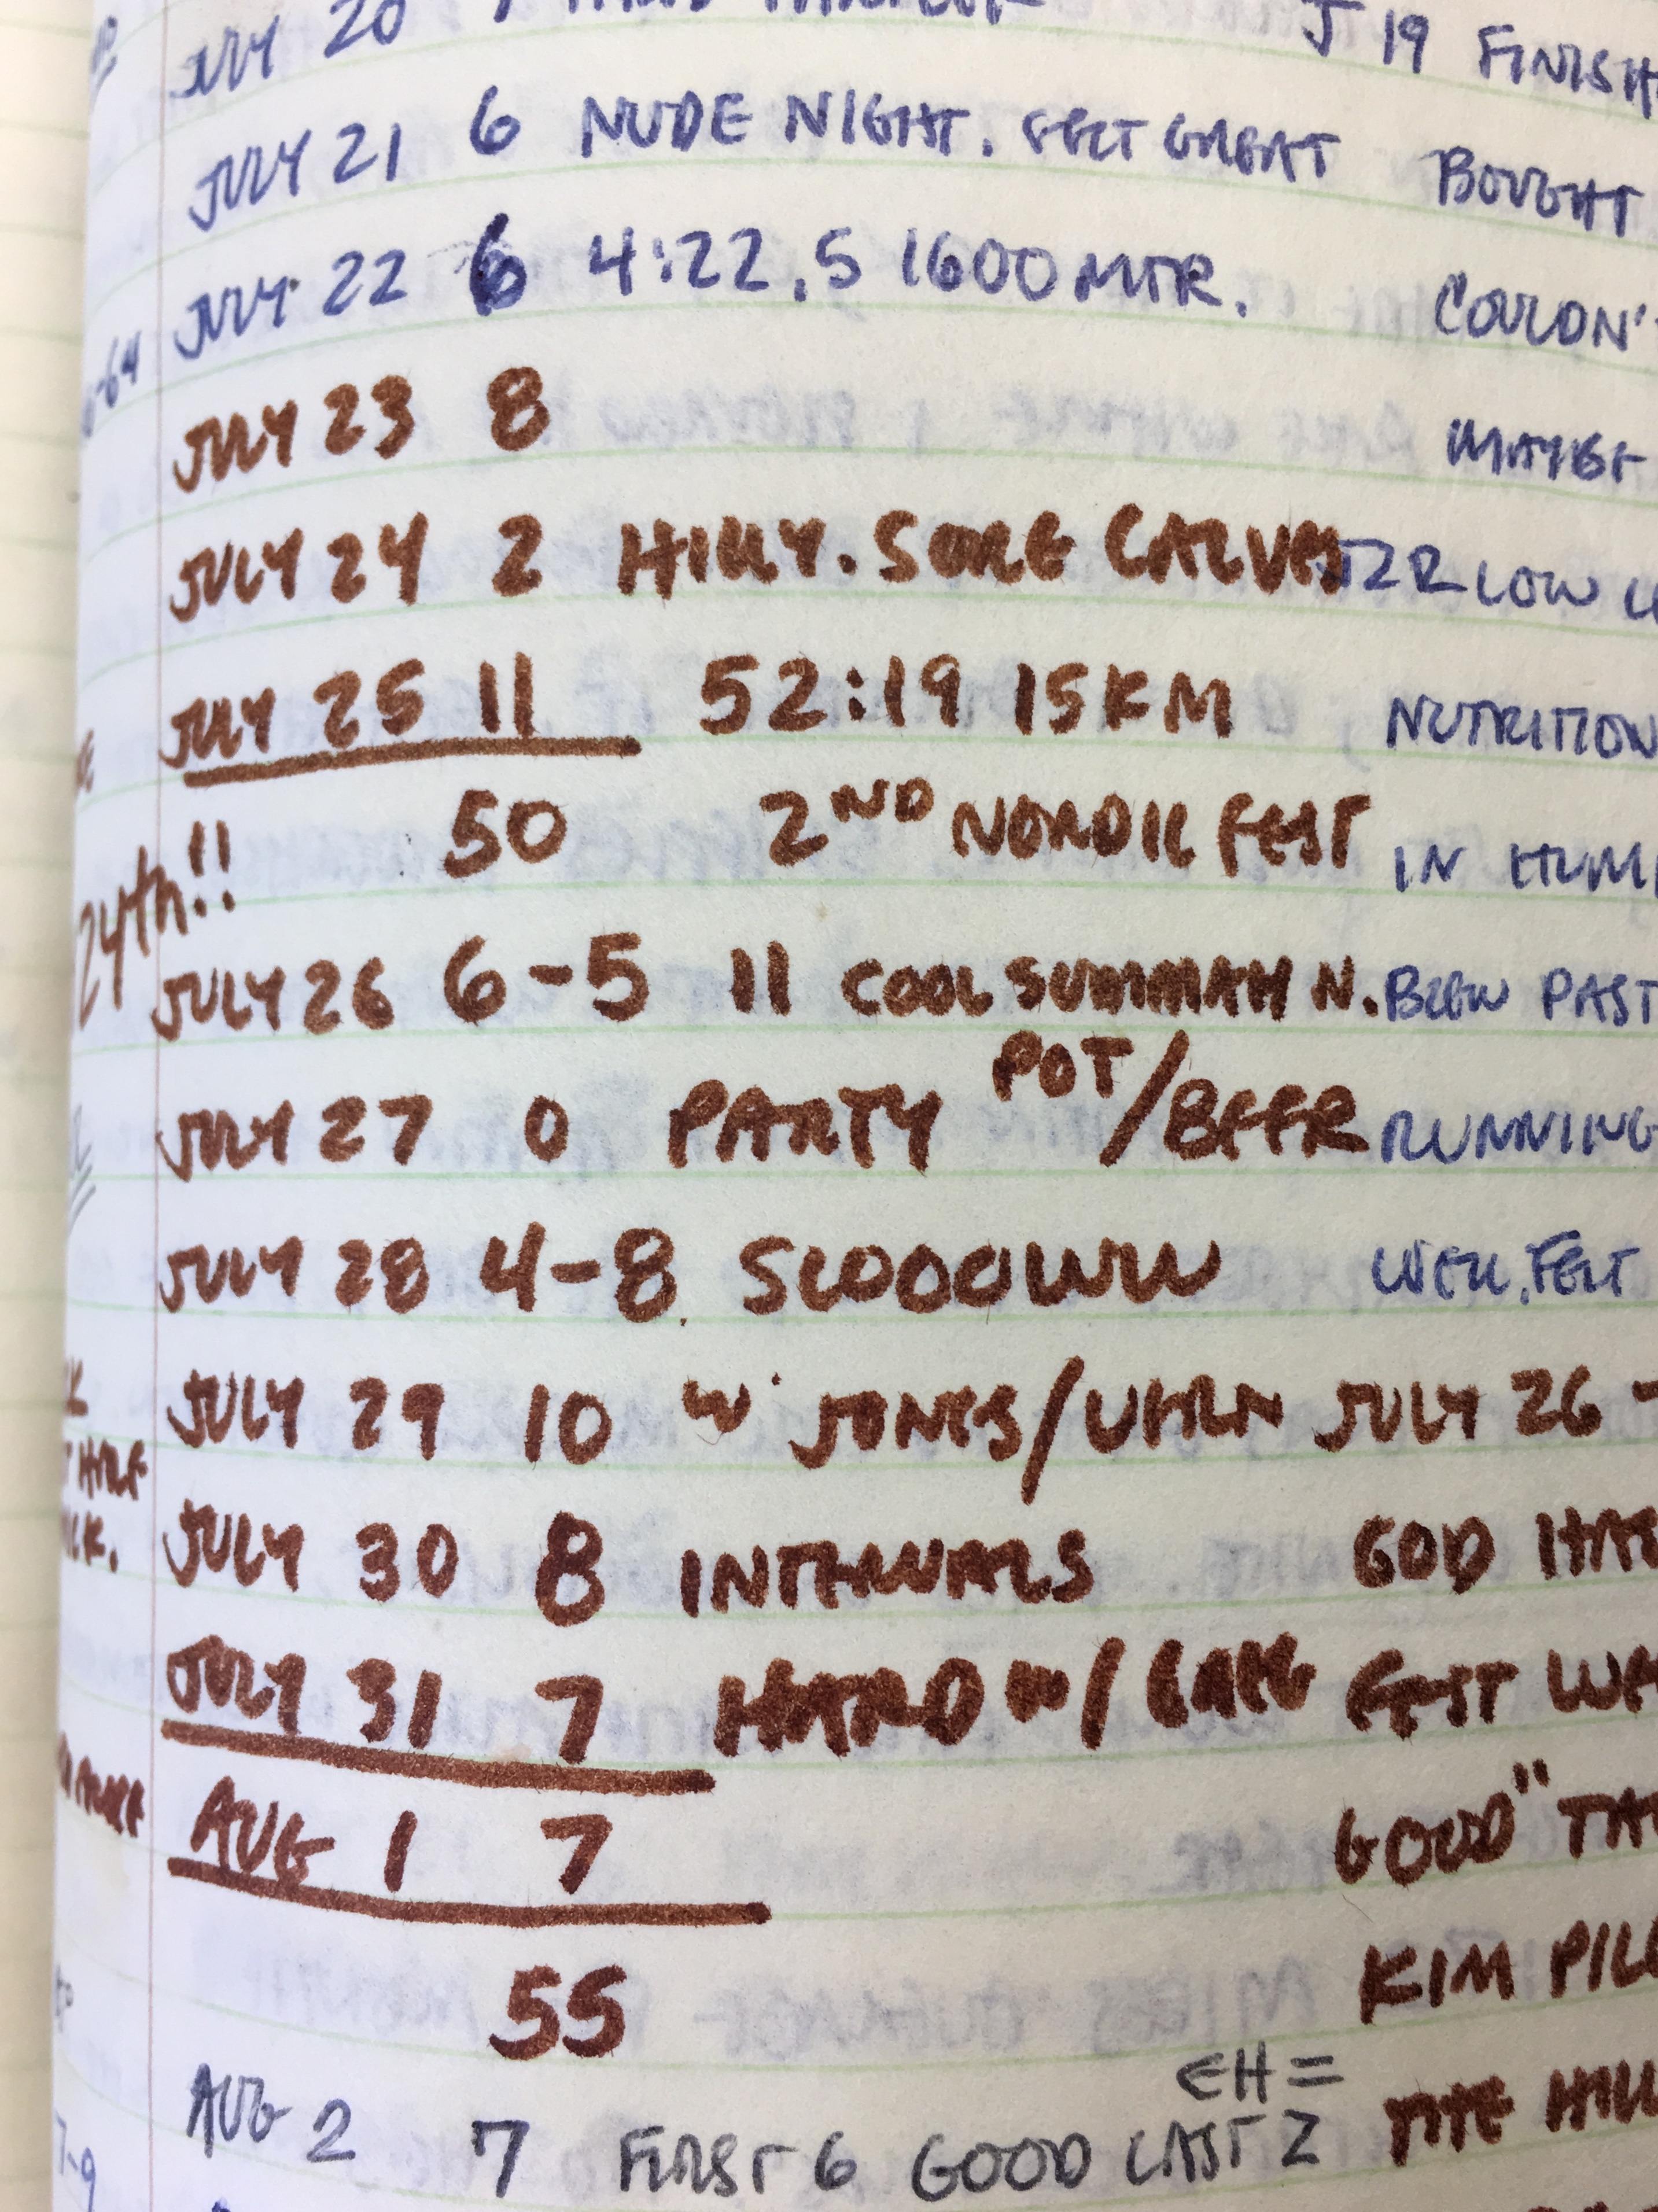 JULY 20 J 19 FINISH
JULY 21 6 NUDE NIGHT. FELT GREAT BOUGHT
JULY 22 6 4:22.5 1600 MTR. COULDN'
-64
JULY 23 8 MAYBE
JULY 24 2 HILLY. SORE CALVES LOW
JULY 25 11 52:19 15KM NUTRITION
50 2ND NORDIC FEST IN HUM
24th!!
JULY 26 6-5 11 COOL SUMMAH N. BLEW PAST
JULY 27 0 PARTY POT/BEER RUNNING
JULY 28 4-8. SLOOOOWW WELL. FELT
JULY 29 10 W/ JONES/UHRN JULY 26 -
HALF
JULY 30 8 INTERVALS GOD HA
JULY 31 7 HARD W/ FELT WE
AUG 1 7 GOOD" TA
55 KIM PIL
EH =
AUG 2 7 FIRST 6 GOOD LAST 2 HILL
7-9